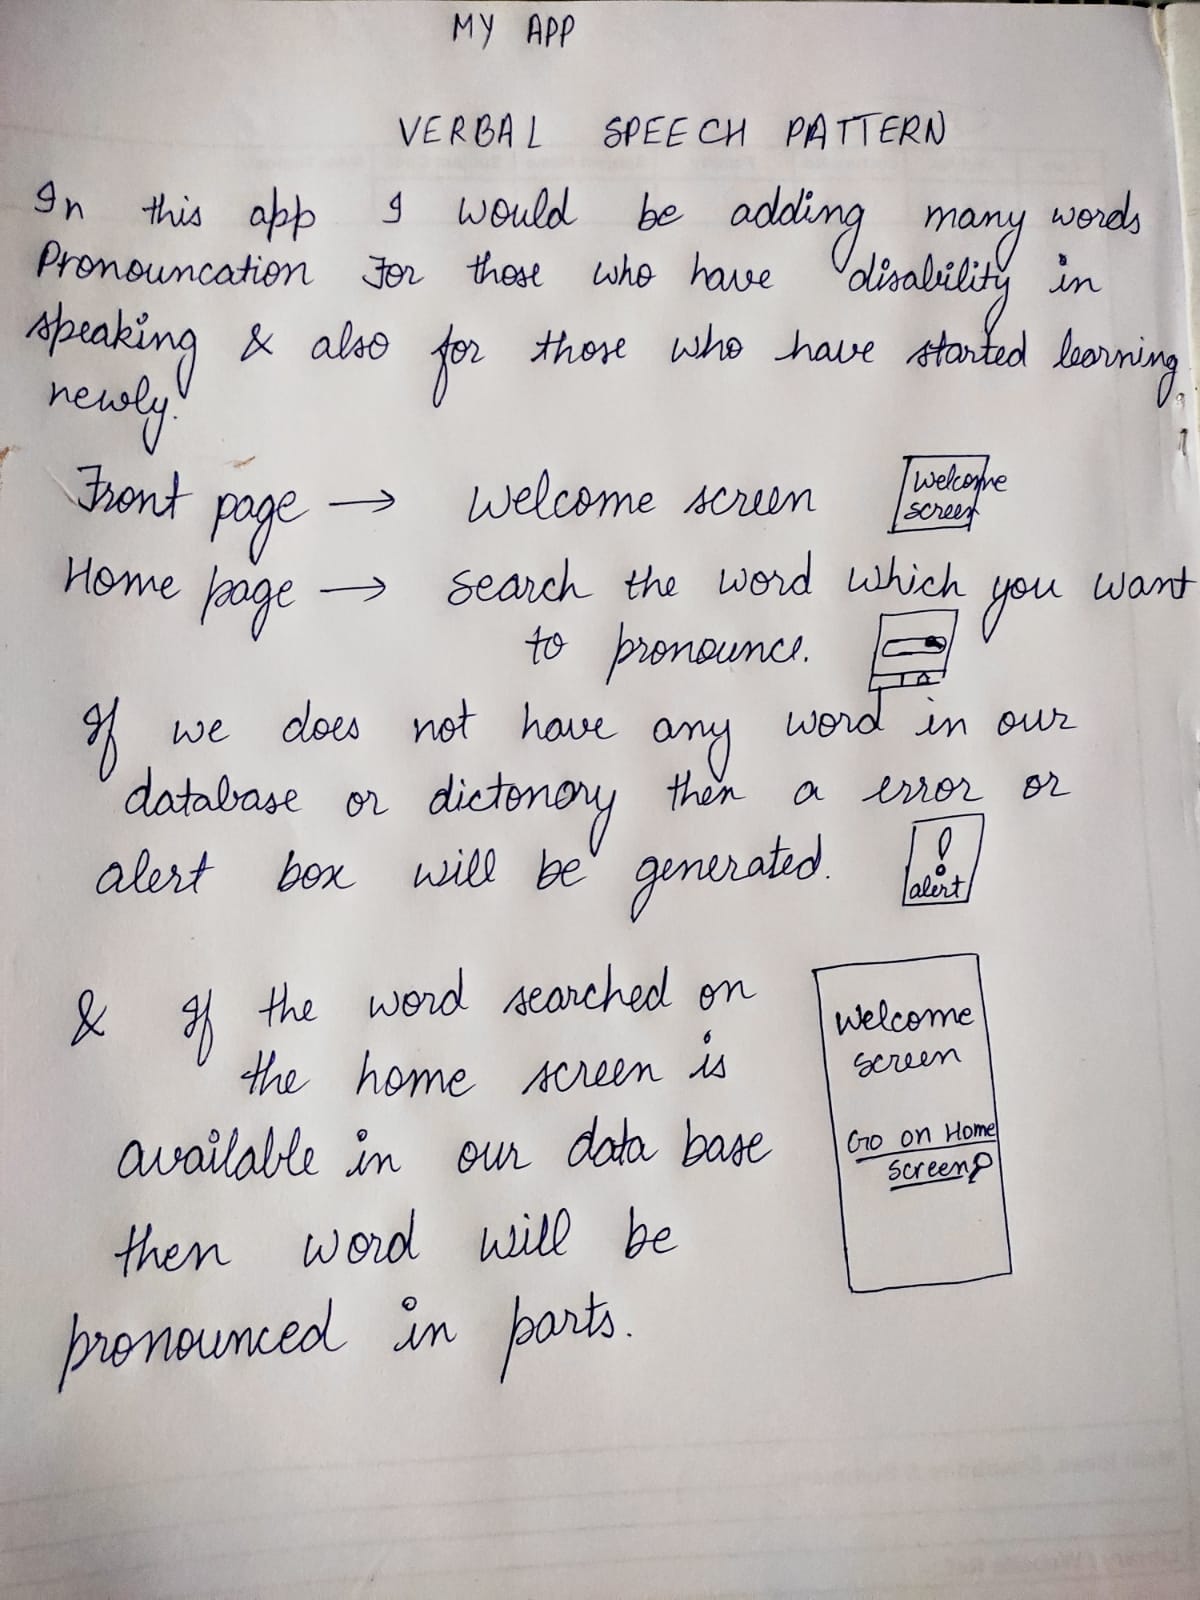 MY APP
VERBAL SPEECH PATTERN
In this app I would be adding many words
Pronouncation For those who have disability in
speaking & also for those who have started learning
newly.
Front page → Welcome screen
Welcome
screen
Home page → Search the word which you want
to pronounce.
If we does not have any word in our
database or dictonory then a error or
alert box will be generated.
!
alert
& If the word searched on
the home screen is
available in our data base
then word will be
pronounced in parts.
Welcome
screen
Go on Home
screen